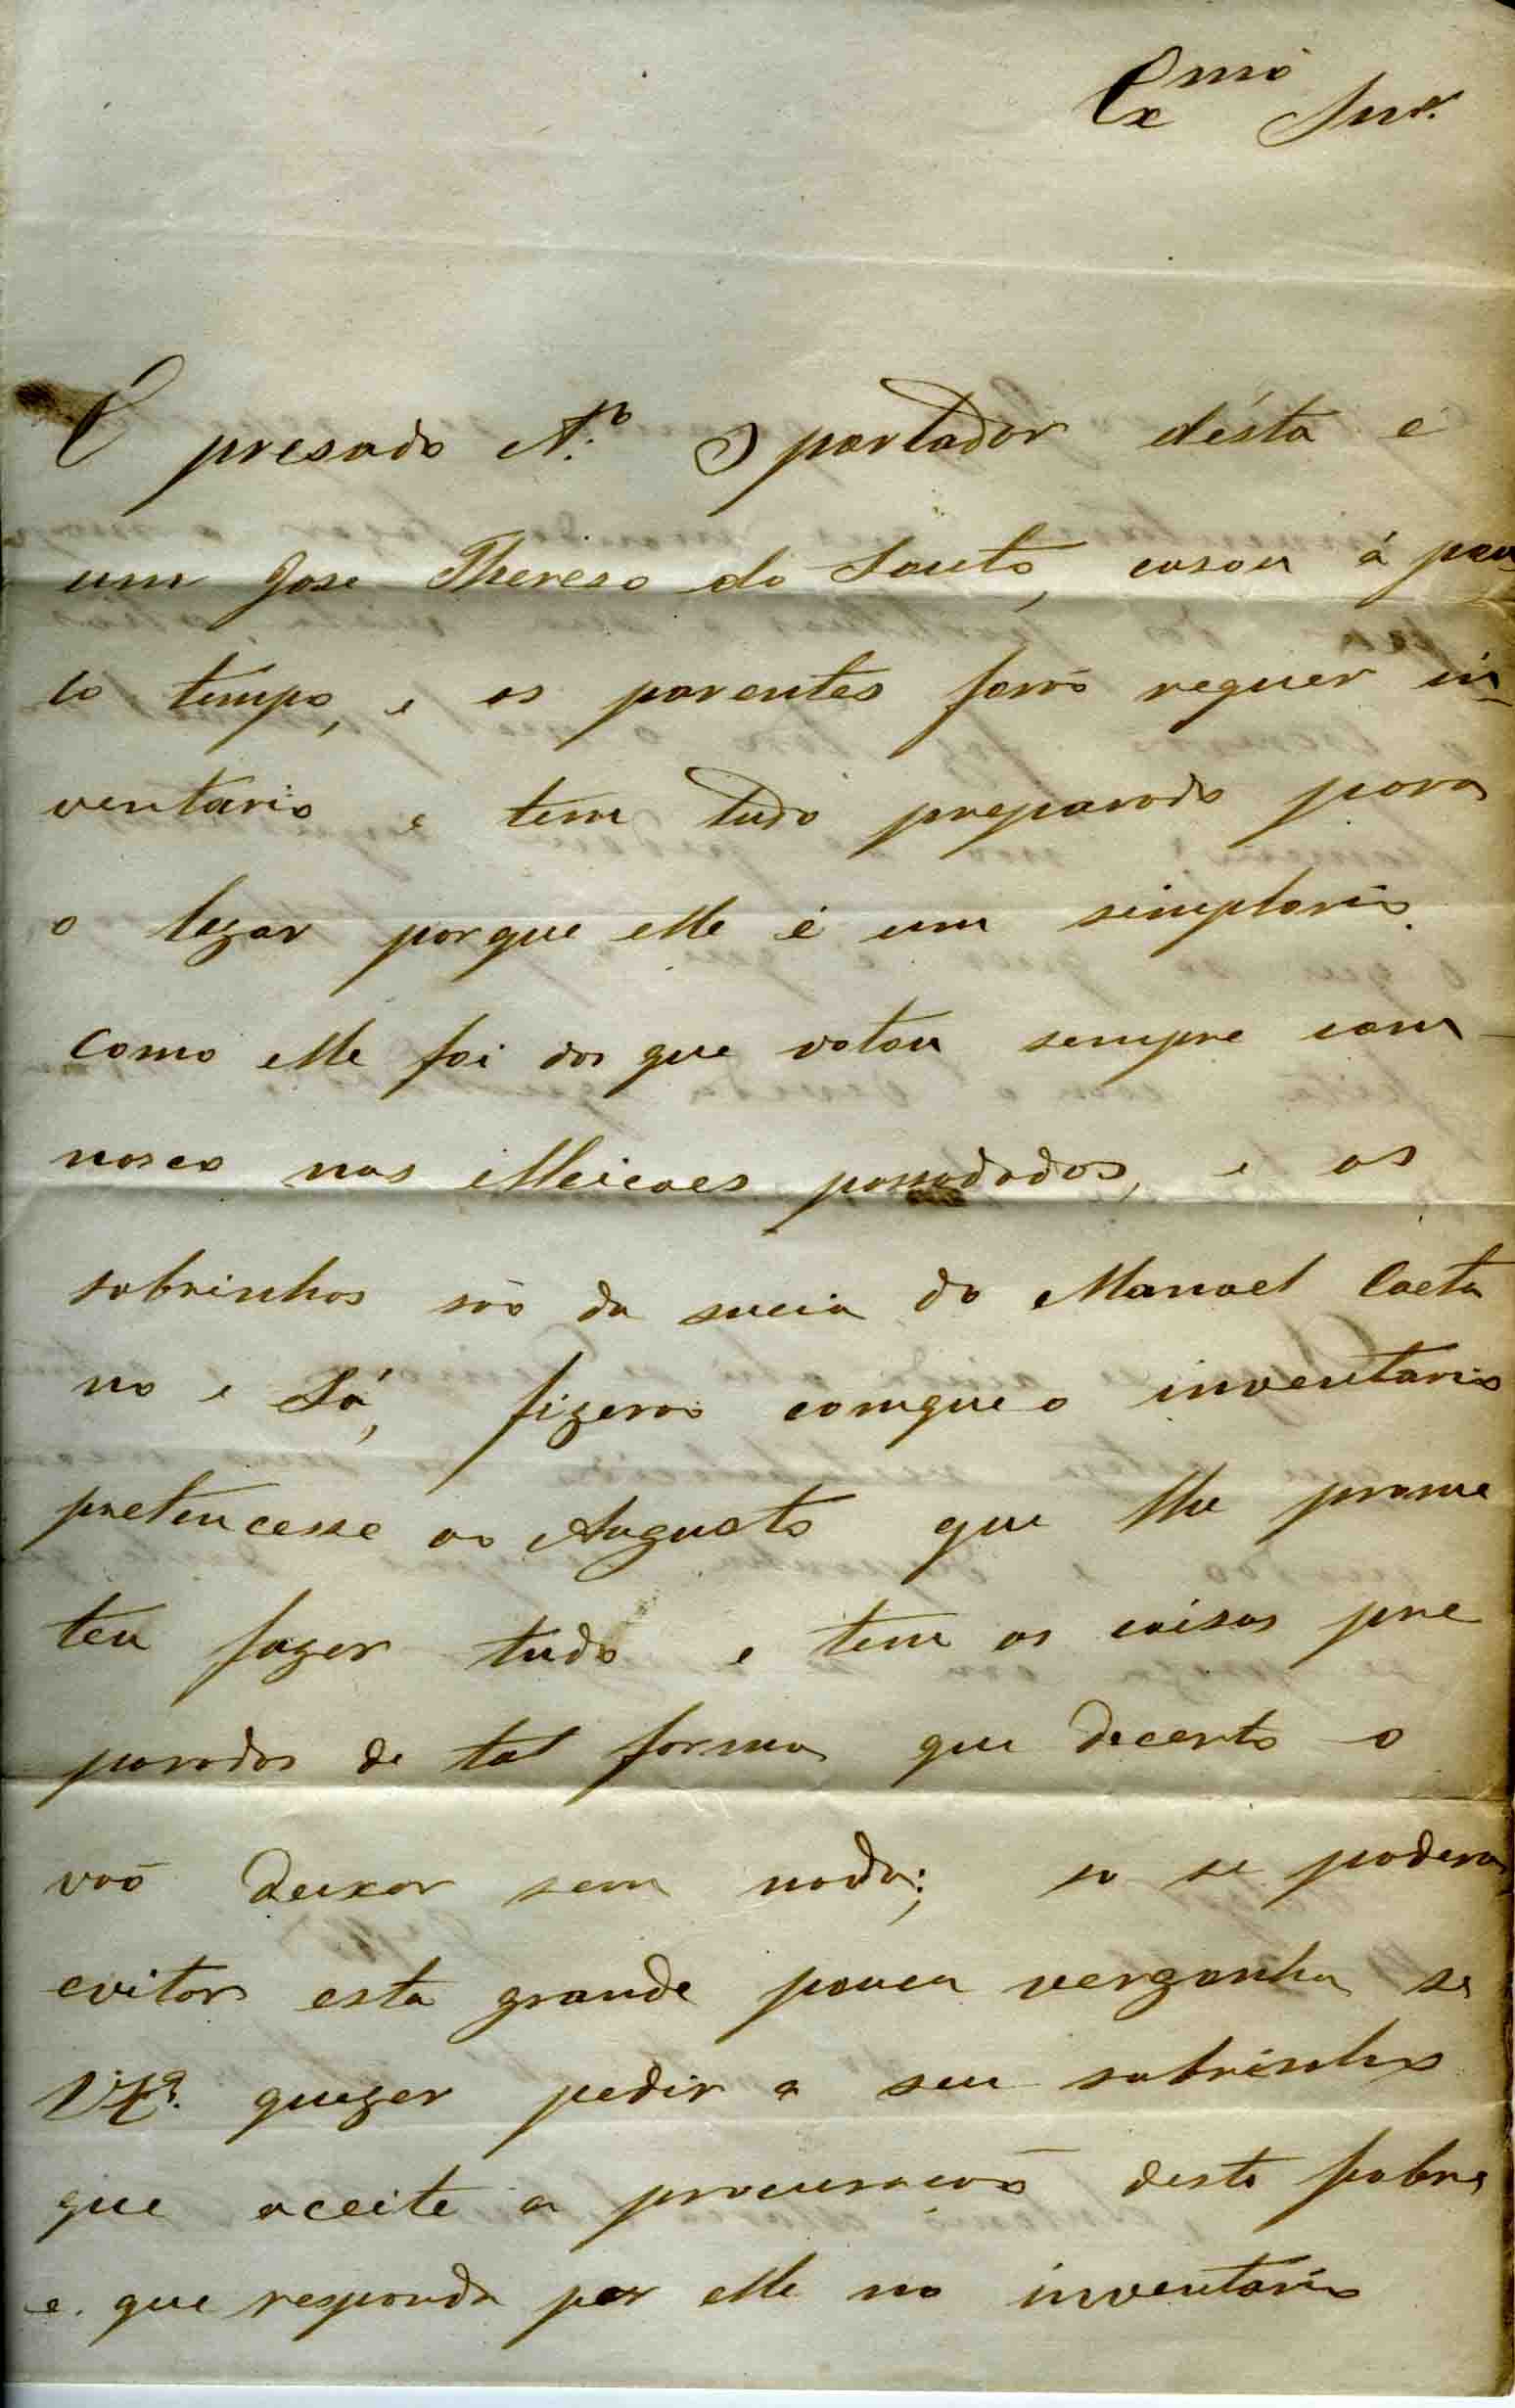 Exmo Snr.
E presado A.º O portador désta é
um José Thereso do Souto, casou á pou
co tempo, e os parentes forão requer in
ventario e tem tudo preparado para
o lezar porque elle é um simplorio.
Como elle foi dos que votou sempre com
nosco nas elleicoes passadados, e os
sobrinhos são da sucia do Manoel Caeta
no e Sá, fizerão comque o inventario
pretencesse ao Augusto que lhe prome
teu fazer tudo e tem as coisas pre
paradas de tal forma que decerto o
vão deixar sem nada; so se poderá
evitar esta grande pouca vergonha se
VExª. quezer pedir a seu sobrinho
que aceite a procuracão deste pobre
e. que responda por elle no inventario